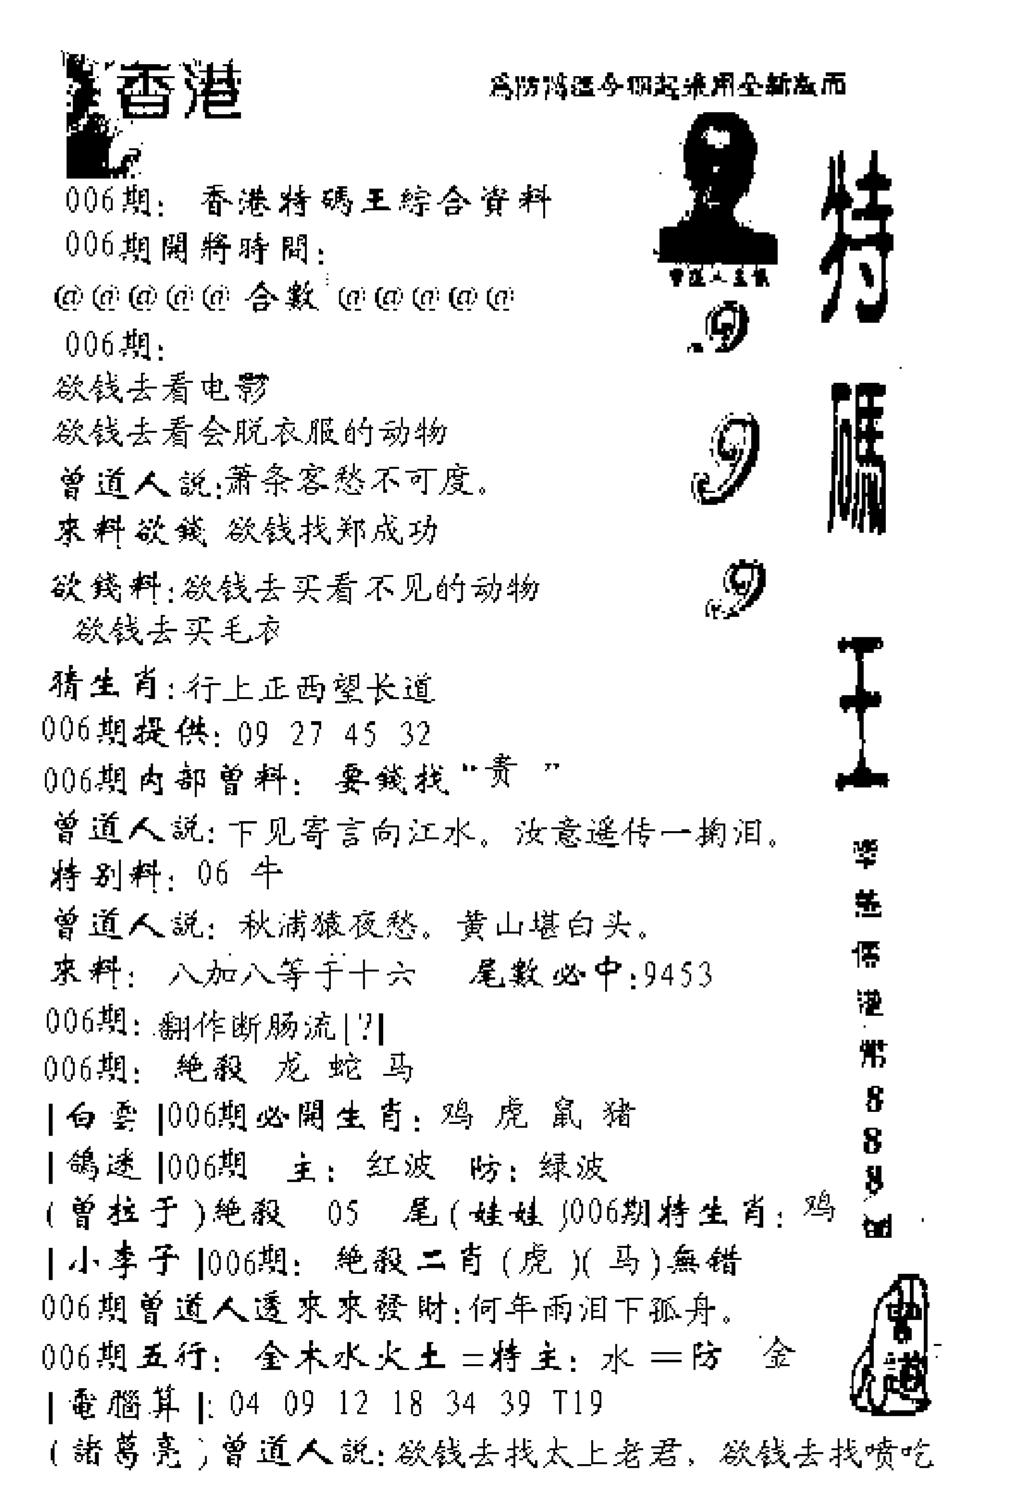 香港
為防濫今期起采用全新版面
曾道人主
006期: 香港特碼王綜合資料
006期開將時間:
@@@@@合數@@@@@
006期:
欲钱去看电影
欲钱去看会脱衣服的动物
曾道人説:萧条客愁不可度。
來料欲錢 欲钱找郑成功
欲錢料:欲钱去买看不见的动物
欲钱去买毛衣
猜生肖:行上正西望长道
006期提供: 09 27 45 32
006期内部曾料: 要錢找“贵 ”
曾道人説:下见寄言向江水。汝意遥传一掬泪。
特别料: 06 牛
曾道人説: 秋浦猿夜愁。黄山堪白头。
來料: 八加八等于十六 尾數必中:9453
006期:翻作断肠流[?]
006期: 絶殺 龙 蛇 马
|白雲|006期必開生肖: 鸡 虎 鼠 猪
|鴿迷|006期 主: 红波 防: 绿波
(曾拉于)絶殺 05 尾(娃娃)006期特生肖: 鸡
|小李子|006期: 絶殺二肖(虎)(马)無錯
006期曾道人透來來發財:何年雨泪下孤舟。
006期五行: 金木水火土=特主: 水 =防 金
|電腦算|: 04 09 12 18 34 39 T19
(諸葛亮)曾道人説:欲钱去找太上老君，欲钱去找喷吃
9
9
9
特
碼
王
港
幣
8
8
8